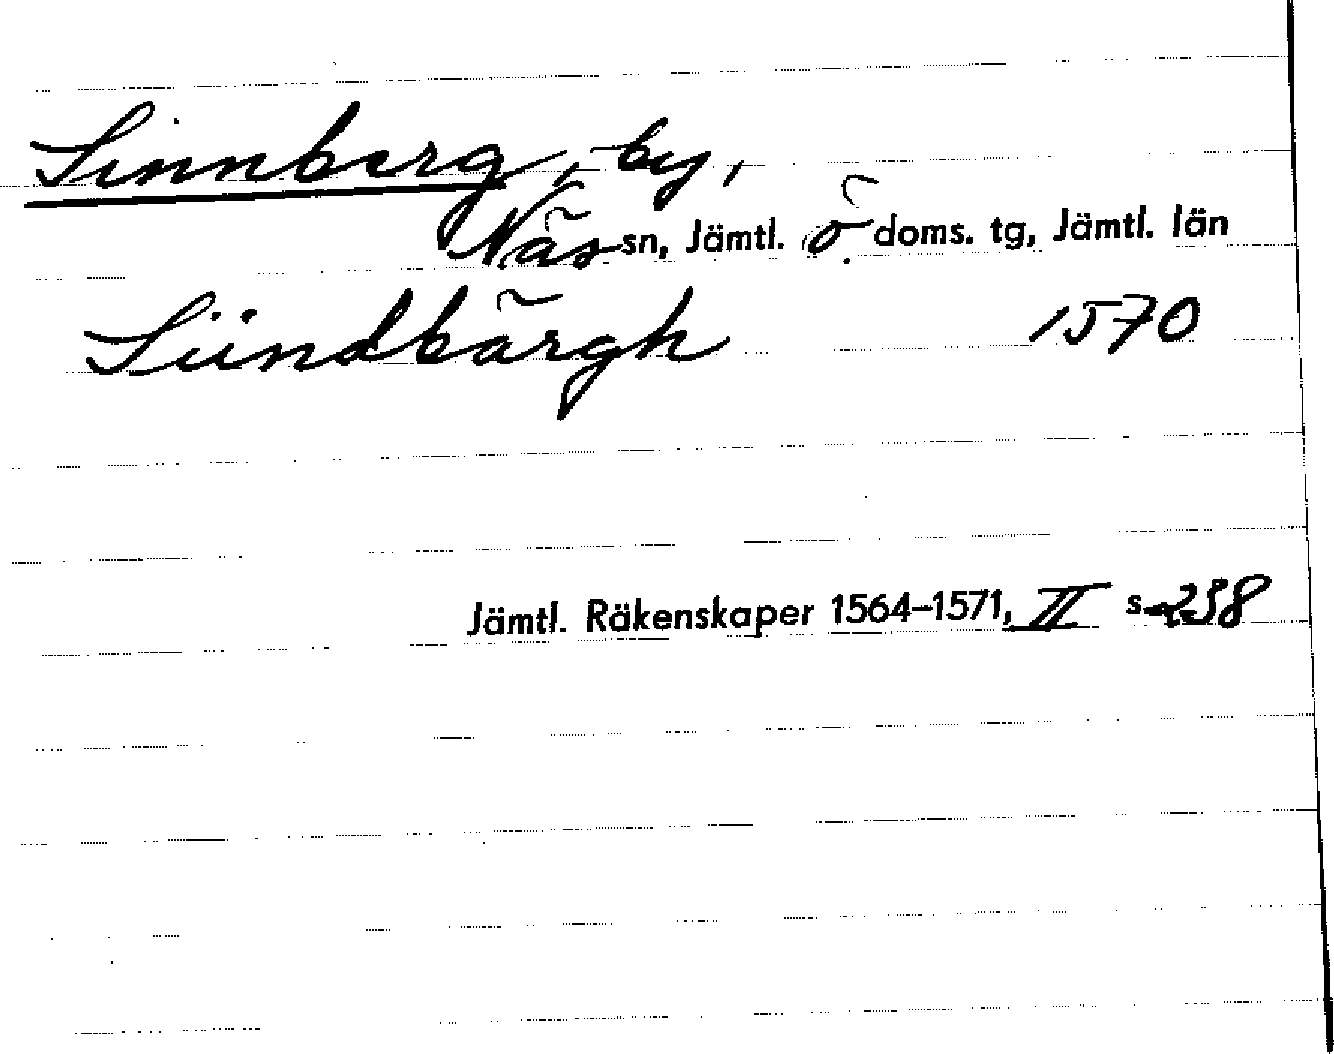 Sinnberg, by,
Näs sn, Jämtl. ö. doms. tg, Jämtl. län
Sündbärgh 1570
Jämtl. Räkenskaper 1564-1571, II s. 238